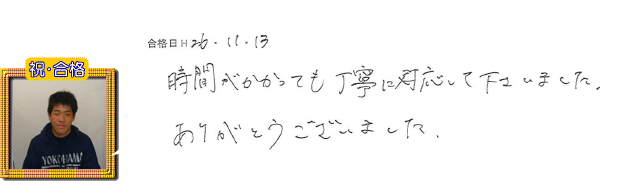 合格日 H 26.11.13
祝・合格
時間がかかっても丁寧に対応して下さいました。
ありがとうございました。
YOKOHAMA